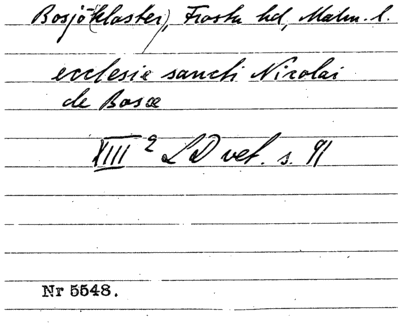 Bosjö(kloster), Frosta hd, Malm. l.
ecclesie sancti Nicolai
de Bosœ
XIII 2 LD vet. s. 91
Nr 5548.